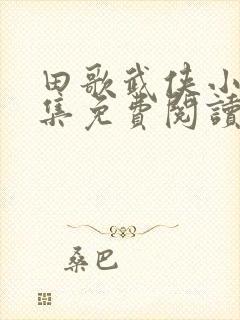 田歌武侠小
集免費閱讀
桑巴